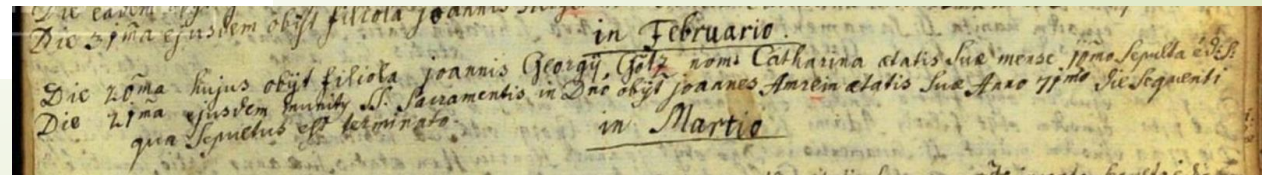 Die 31ma ejusdem obijt filiola Joannis
in Februario.
Die 20ma hujus obijt filiola joannis Georgij Götz nom: Catharina ætatis suæ mense 10mo Sepulta e: d: S:
Die 21ma ejusdem munity SS. Sacramentis in Dno obijt joannes Amrein ætatis suæ Anno 71mo die sequenti
qua Sepultus est terminato.
in Martio